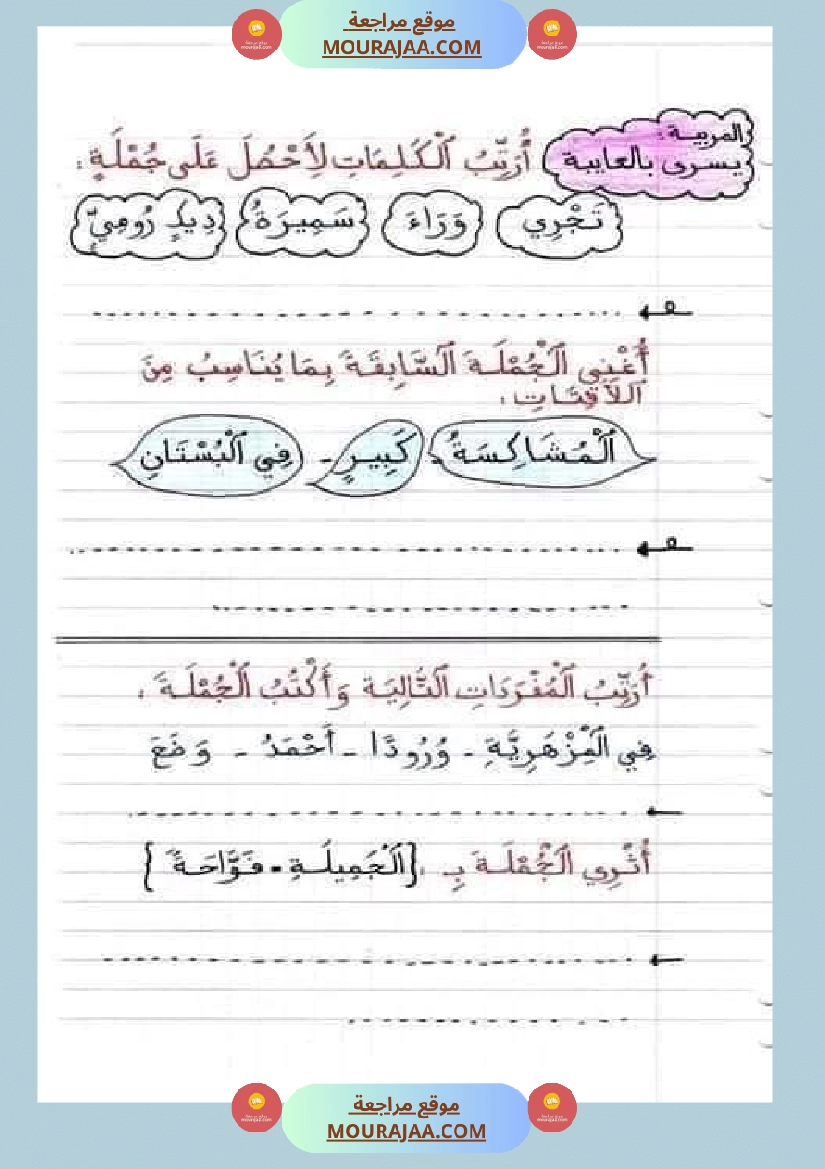 موقع مراجعة
MOURAJAA.COM
المربية:
يسرى بالعايبة
أُرَتِّبُ ٱلْكَلِمَاتِ لِأَحْصُلَ عَلَى جُمْلَةٍ:
تَجْرِي وَرَاءَ سَمِيرَةُ دِيكٍ رُومِيٍّ
أُغْنِي ٱلْجُمْلَةَ ٱلسَّابِقَةَ بِمَا يُنَاسِبُ مِنَ
ٱللَّافِتَاتِ:
ٱلْمُشَاكِسَةُ - كَبِيرٍ - فِي ٱلْبُسْتَانِ
أُرَتِّبُ ٱلْمُفْرَدَاتِ ٱلتَّالِيَةَ وَأَكْتُبُ ٱلْجُمْلَةَ:
فِي ٱلْمِزْهَرِيَّةِ - وُرُودًا - أَحْمَدُ - وَضَعَ
أُثْرِي ٱلْجُمْلَةَ بِـ: {ٱلْجَمِيلَةِ - فَوَّاحَةً}
موقع مراجعة
MOURAJAA.COM